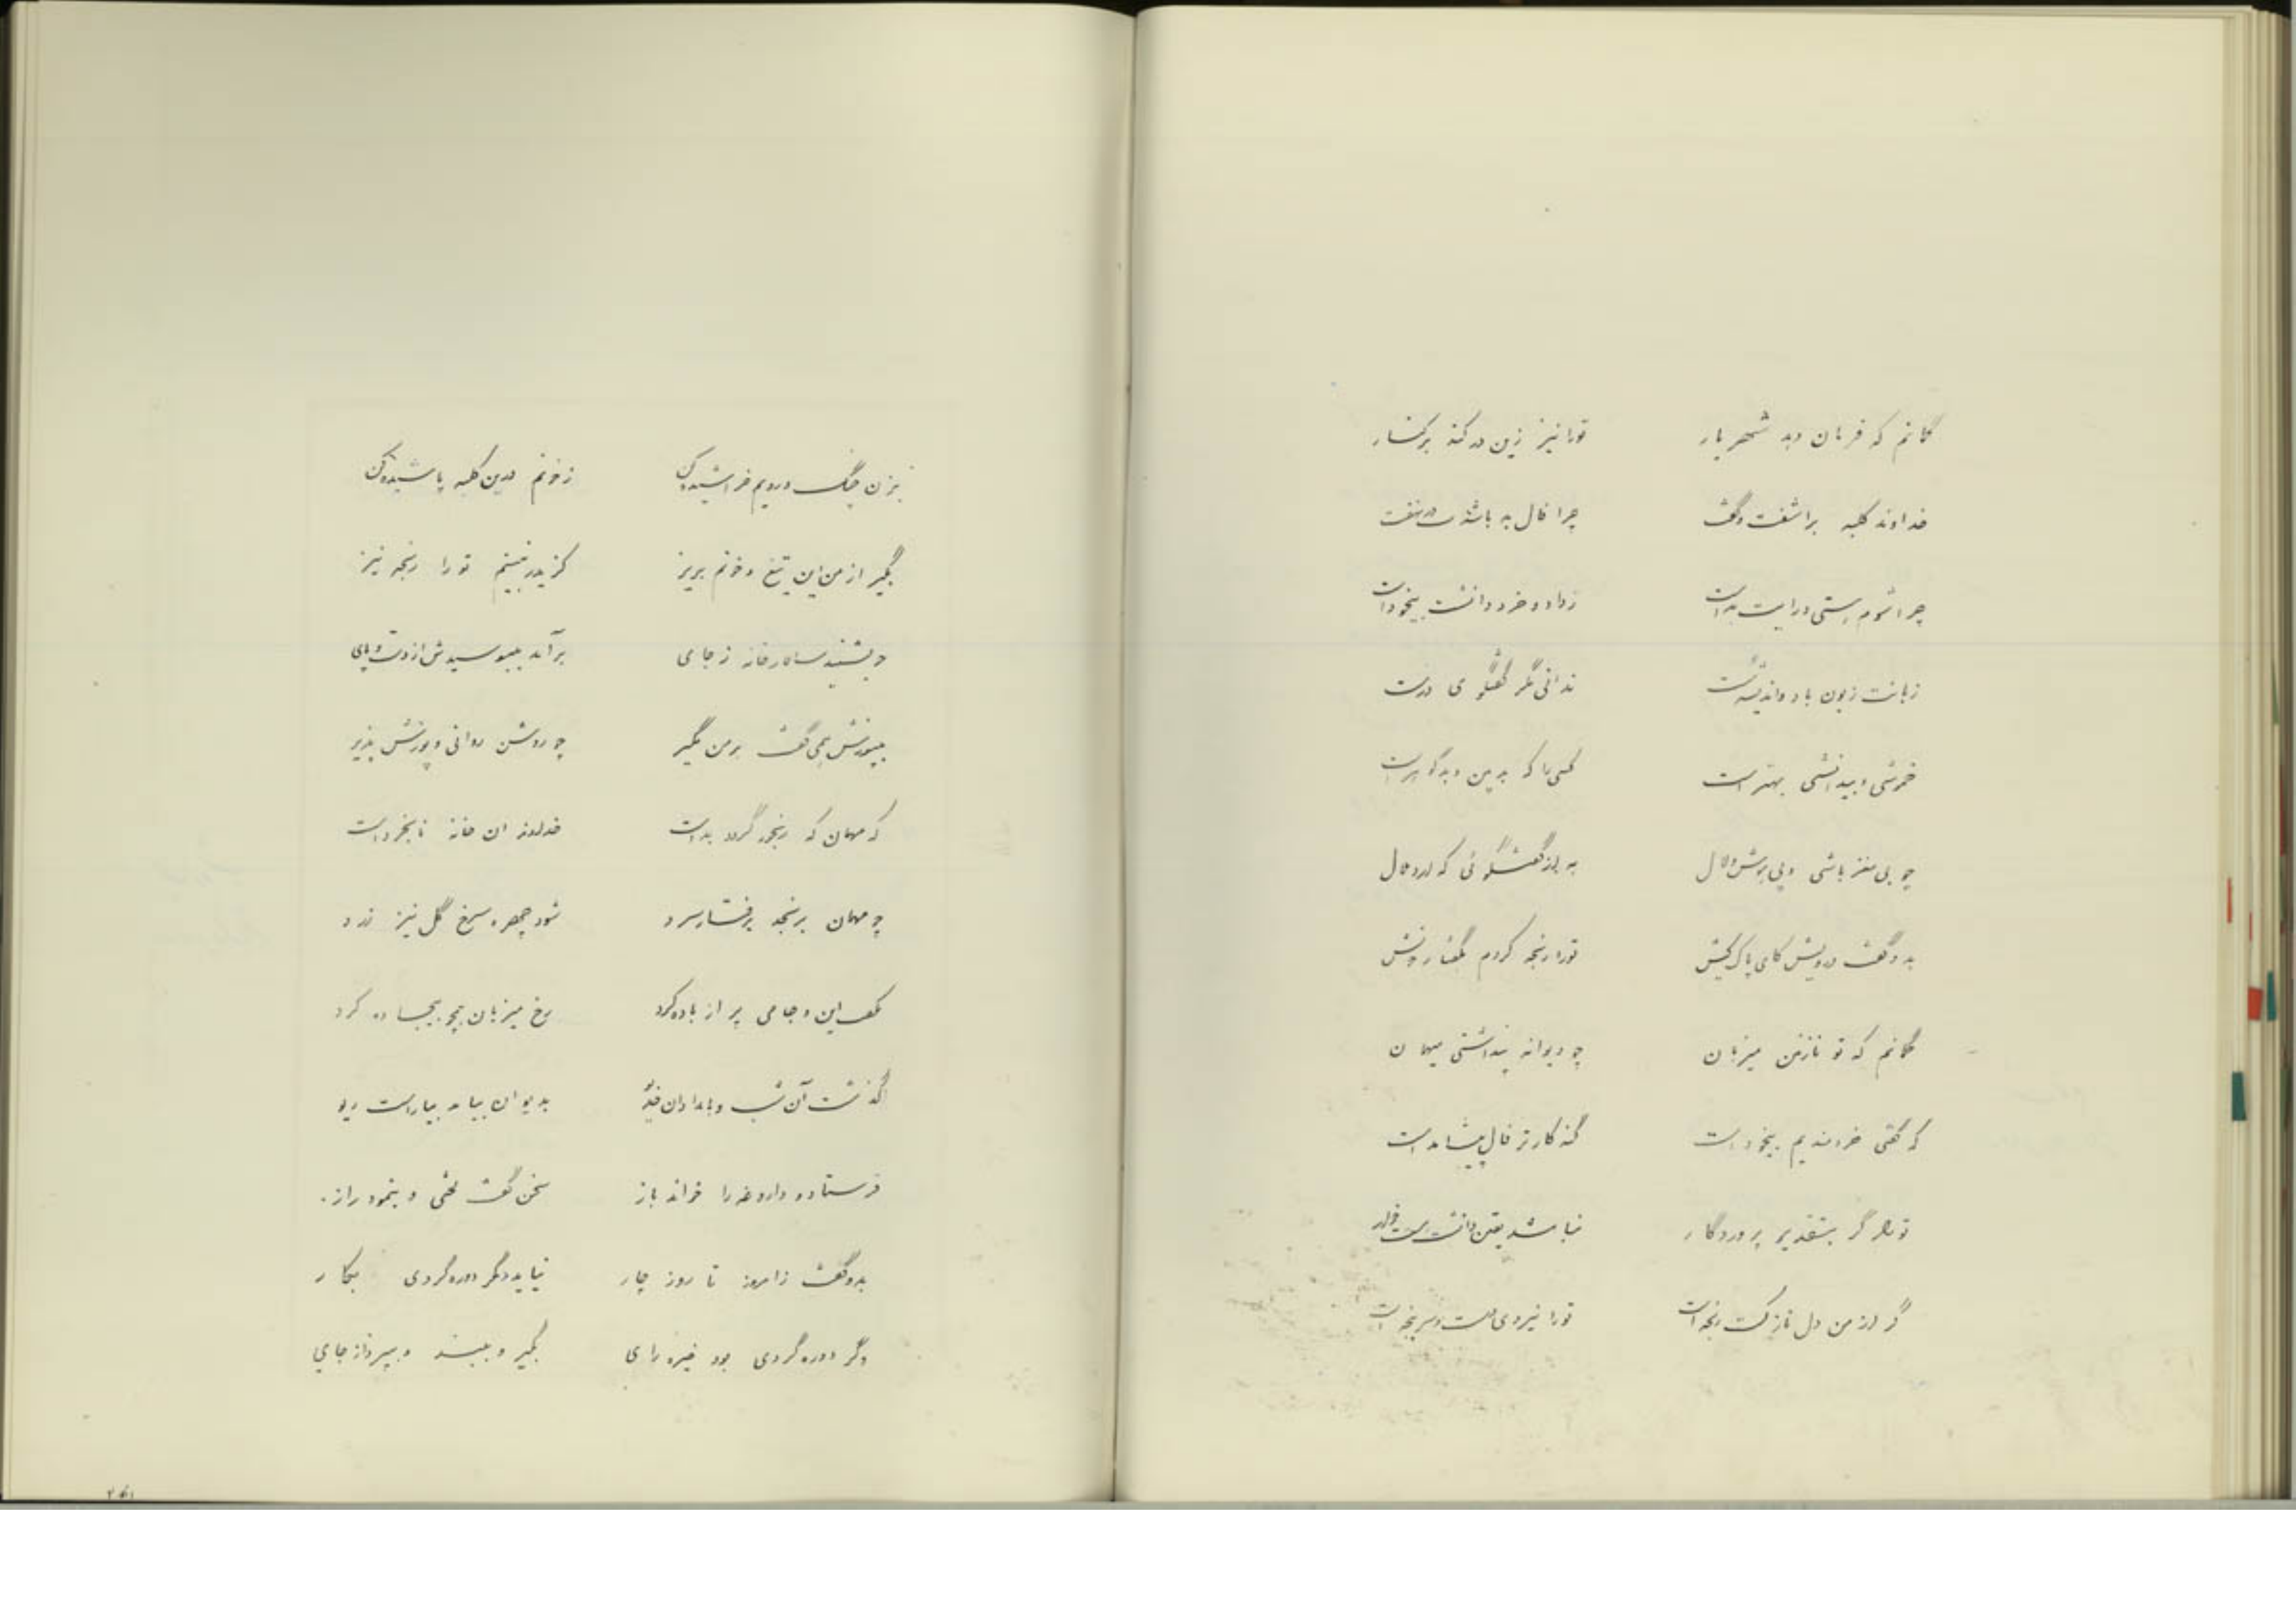 گمانم که فرمان دهد شهریار تو را نیز زین در کند برکنار
خداوند کلبه براشفت و گفت چرا فال بد باشدت در نهفت
چرا شوم پستی و رایت بد است ز داد و خرد دانشت بیخود است
زبانت زبون باد و اندیشه سست ندانی مگر گفتگوی درست
خموشی و بیدانشی بهتر است کسی را که بدبین و بدگوهر است
چو بی مغز باشی و بی هوش و لال به از گفتگوئی که آرد ملال
بدو گفت درویش کای پاک کیش تو را رنجه کردم ز گفتار
گمانم که تو نازنین میزبان چو دیوانه پنداشتی میهمان
که گفتی خردمندیم بیخود است گنه کارتر فال پیشامد است
تو را گر بتقدیر پروردگار نباشد یقین دانشت
گر از من دل نازکت رنجه است تو را نیروی دست و سرپنجه است
بزن چنگ و رویم خراشیده کن ز خونم درین کلبه پاشیده کن
بگیر از من این تیغ و خونم بریز کز ایدر نبینم تو را رنجه نیز
چو بشنید سالار خانه ز جای برآمد ببوسیدش از دست و پای
بپوزش همی گفت بر من مگیر چو روشن روانی و پوزش پذیر
که مهمان که رنجور گردد بد است خداوند ان خانه نابخرد است
چو مهمان برنجد ز رفتار سرد شود چهره سرخ گل نیز زرد
بگفت این و جامی پر از باده کرد رخ میزبان همچو بیجاده کرد
گذشت آن شب و بامدادان خدیو بدیوان بیامد بیاراست ریو
فرستاد و داروغه را خواند باز سخن گفت لختی و بنمود راز.
بدو گفت ز امروز تا روز چار نیاید دگر دوره گردی بکار
وگر دوره گردی بود خیره رای بگیر و ببند و بپرداز جای